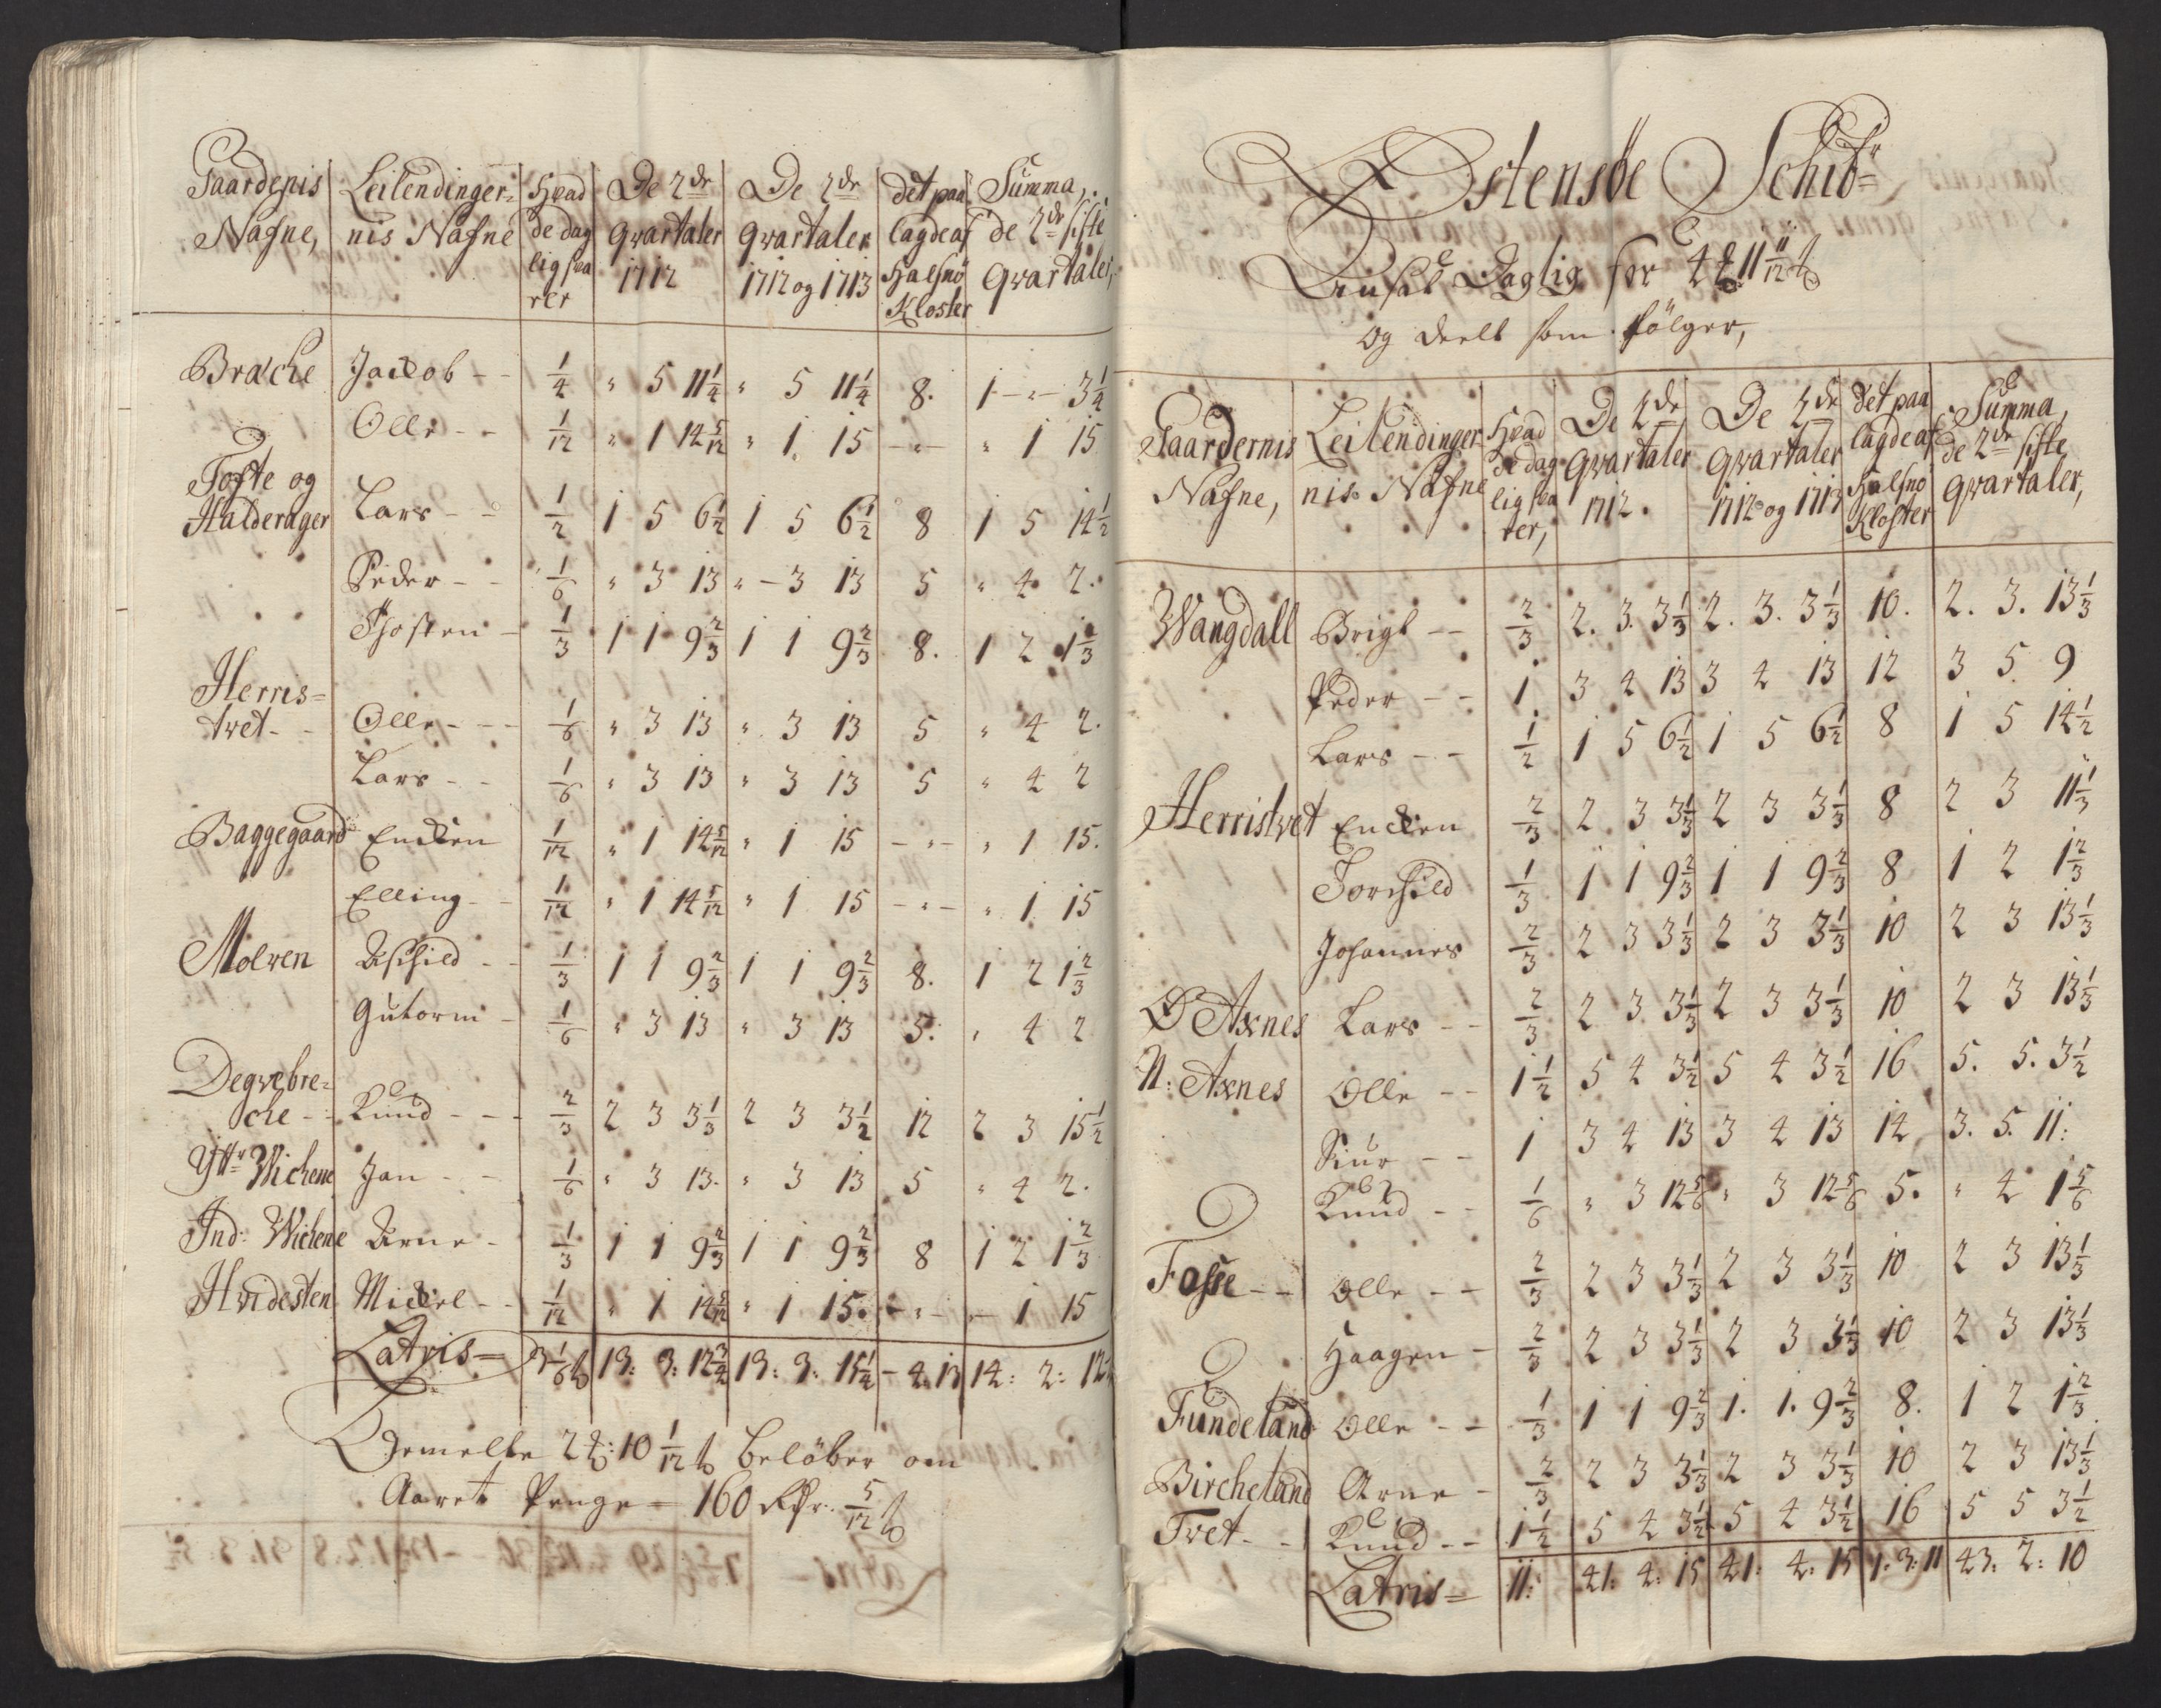 Gaardenis Nafne, | Leilendinger- nis Nafne | Hvad de dag lig sva rer | De 2de qvartaler 1712 | De 2de qvartaler 1712 og 1713 | det paa lagde af Halsnö Kloster | Summa, de 2de siste qvartaler,
Brache | Jacob -- | 1/4 | " 5 11 1/4 | " 5 11 1/4 | 8. | 1 - " - 3 1/4
Olle -- | 1/12 | " 1 14 5/12 | " 1 15 | - " - | " 1 15
Tofte og
Halderager | Lars -- | 1/2 | 1 5 6 1/2 | 1 5 6 1/2 | 8 | 1 5 14 1/2
Peder -- | 1/6 | " 3 13 | " - 3 13 | 5 | " 4 2.
Thosten - | 1/3 | 1 1 9 2/3 | 1 1 9 2/3 | 8. | 1 2 1 2/3
Herris=
tvet -- | Olle --- | 1/6 | " 3 13 | " 3 13 | 5 | " 4 2.
Lars -- | 1/6 | " 3 13 | " 3 13 | 5 | " 4 2
Baggegaard | Encken | 1/12 | " 1 14 5/12 | " 1 15 | - " - | " 1 15.
Elling -- | 1/12 | " 1 14 5/12 | " 1 15 | - " - | " 1 15
Molven | Aschild -- | 1/3 | 1 1 9 2/3 | 1 1 9 2/3 | 8. | 1 2 1 2/3
Gutorm - | 1/6 | " 3 13 | " 3 13 | 5: | " 4 2
Degvebre=
che -- | Knud --- | 2/3 | 2 3 3 1/3 | 2 3 3 1/2 | 12 | 2 3 15 1/2
Ytr Wichene | Jan -- | 1/6 | " 3 13. | " 3 13 | 5 | " 4 2.
Ind: Wichene | Arne - | 1/3 | 1 1 9 2/3 | 1 1 9 2/3 | 8 | 1 2 1 2/3
Hvidesten | Mickel -- | 1/12 | " 1 14 5/12 | " 1 15. | - " - | - 1 15
Latris= | 3 1/6 | 13: 3: 12 3/4 | 13: 3: 15 1/4 | - 4: 13 | 14: 2: 12
Bemelte 2 : 10 1/12 belöber om
Aaret Penge = 160 Rdr. 5/12
Östensöe Schibr=
Daglig for 4 11 11/12
og deelt som fölger,
Gaardernis Nafne, | Leilendinger nis Nafne | Hvad de dag lig sva rer, | De 2de qvartaler 1712. | De 2de qvartaler 1712 og 1713 | det paa lagde af Halsnö Kloster | Summa, de 2de siste qvartaler,
Wangdall | Brigt -- | 2/3 | 2. 3. 3 1/3 | 2. 3. 3 1/3 | 10. | 2. 3. 13 1/3
Peder -- | 1. | 3 4 13 | 3 4 13 | 12 | 3 5 9
Lars -- | 1/2 | 1 5 6 1/2 | 1 5 6 1/2 | 8 | 1 5 14 1/2
Herristvet | Encken | 2/3 | 2 3 3 1/3 | 2 3 3 1/3 | 8 | 2 3 11 1/3
Torchild | 1/3 | 1 1 9 2/3 | 1 1 9 2/3 | 8 | 1 2 1 2/3
Johannes | 2/3 | 2 3 3 1/3 | 2 3 3 1/3 | 10 | 2 3 13 1/3
Ö Axnes | Lars -- | 2/3 | 2 3 3 1/3 | 2 3 3 1/3 | 10 | 2 3 13 1/3
N: Axnes | Olle -- | 1 1/2 | 5 4 3 1/2 | 5 4 3 1/2 | 16 | 5. 5. 3 1/2
Siur -- | 1 | 3 4 13 | 3 4 13 | 14 | 3. 5. 11:
Knud -- | 1/6 | " 3 12 5/6 | " 3 12 5/6 | 5. | " 4 1 5/6
Fosse -- | Olle -- | 2/3 | 2 3 3 1/3 | 2 3 3 1/3 | 10 | 2 3 13 1/3
Haagen - | 2/3 | 2 3 3 1/3 | 2 3 3 1/3 | 10 | 2 3 13 1/3
Fundeland | Olle -- | 1/3 | 1 1 9 2/3 | 1. 1. 9 2/3 | 8. | 1 2 1 2/3
Bircheland | Arne - | 2/3 | 2 3 3 1/3 | 2 3 3 1/3 | 10 | 2 3 13 1/3
Tvet -- | Knud -- | 1 1/2 | 5 4 3 1/2 | 5 4 3 1/2 | 16 | 5 5 3 1/2
Latris= | 11: | 41: 4: 15 | 41: 4: 15 | 1: 3: 11 | 43: 2: 10